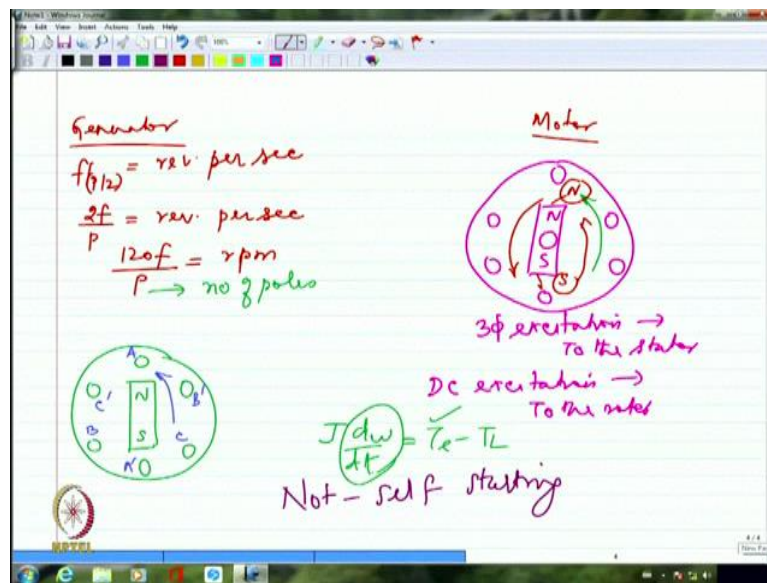 Note1 - Windows Journal
File Edit View Insert Actions Tools Help
100%
Generator
f(P/2) = rev. per sec
2f/P = rev. per sec
120f/P = rpm
→ no of poles
Motor
N
N
S
S
3φ excitation →
To the stator
DC excitation →
To the rotor
A
C'
B'
N
B
S
C
A'
J dω/dt = Te - TL
Not - self starting
NPTEL
4 / 4
4